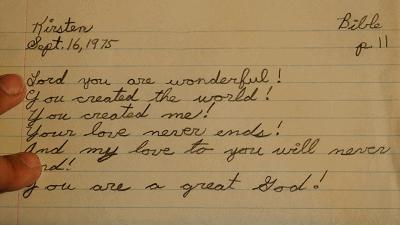 Kirsten
Bible
Sept. 16, 1975
p. 11
Lord you are wonderful!
You created the world!
You created me!
Your love never ends!
And my love to you will never
end!
You are a great God!